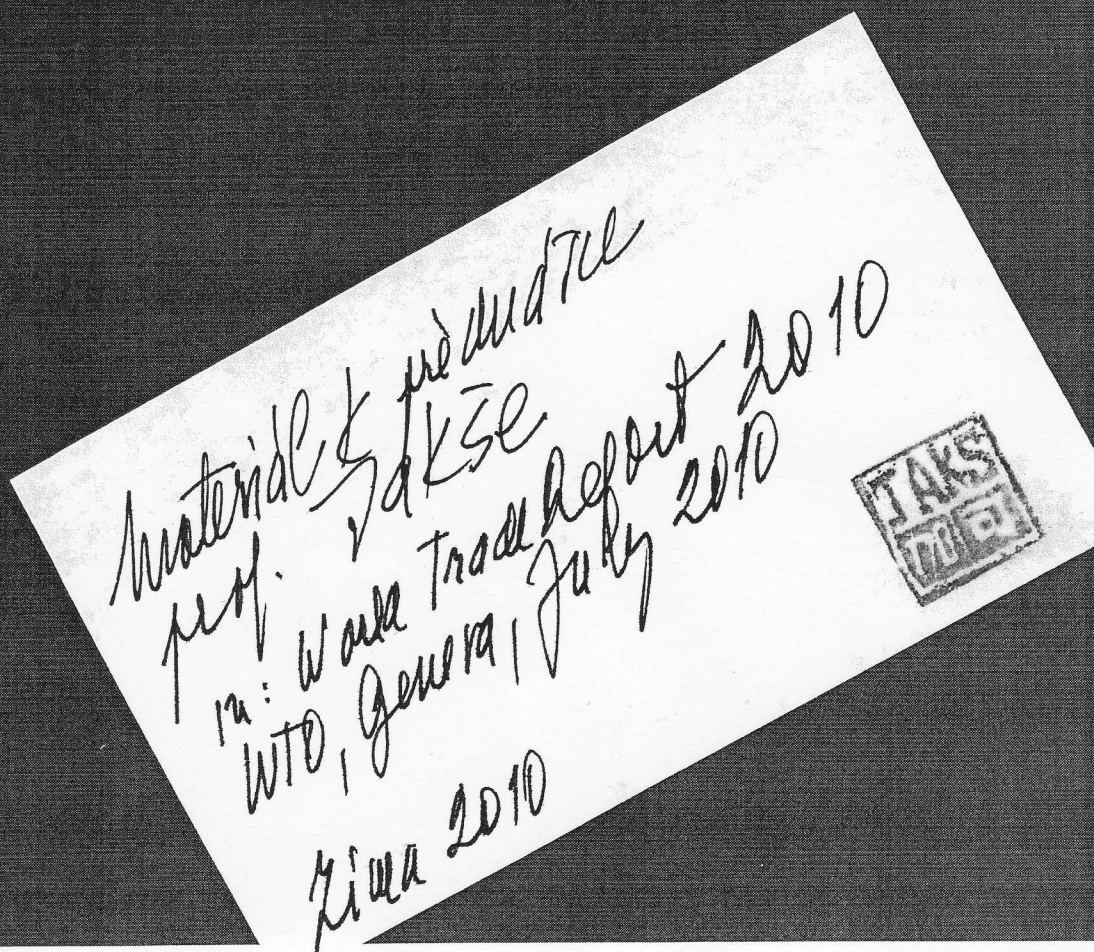 Materiál k přednášce
prof. Jakše
in: World Trade Report 2010
WTO, Geneva, July 2010
Zima 2010
JAKŠ